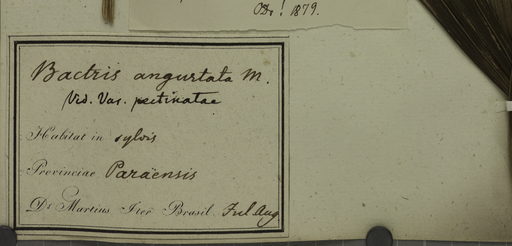 Oct! 1879.
Bactris angustata M.
Vid. Var. pectinatae
Habitat in sylvis
Provinciae Paraënsis
Dr Martius Iter Brasil. Jul Aug